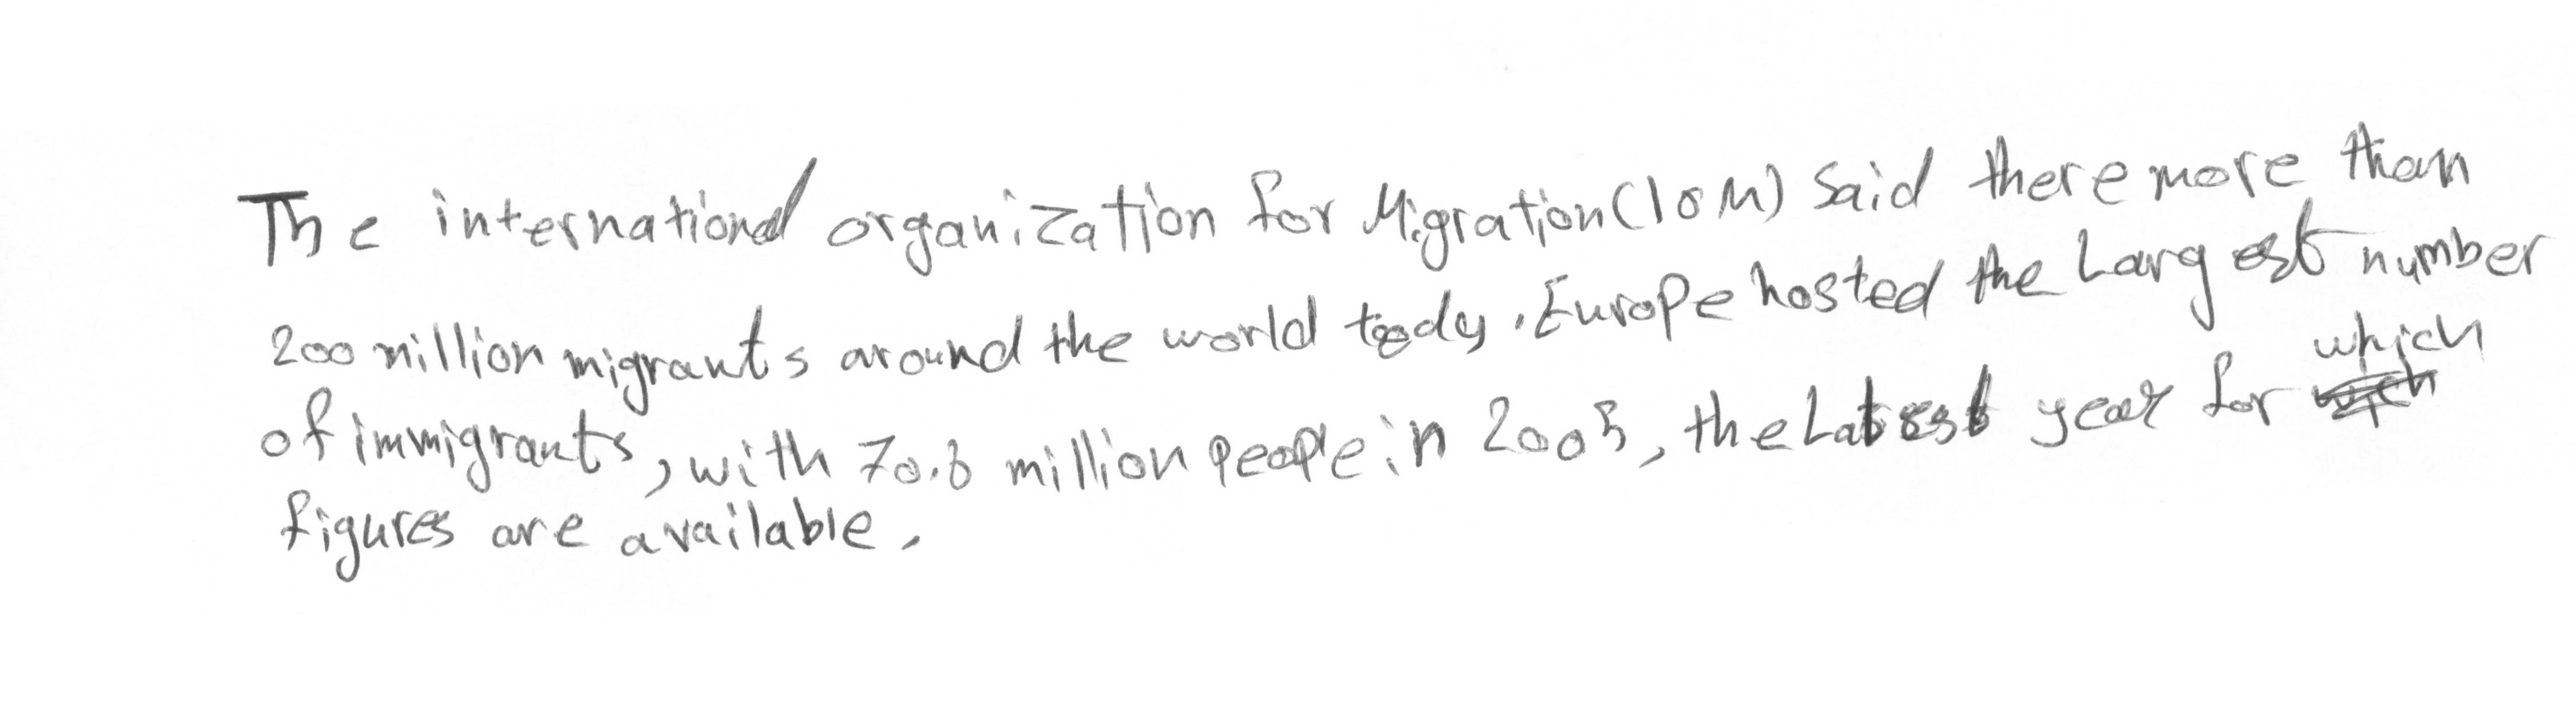 The international organization for Migration (IOM) Said there more than
200 million migrants around the world today. Europe hosted the Largest number
of immigrants, with 70.6 million people in 2005, the Latest year for which
figures are available.